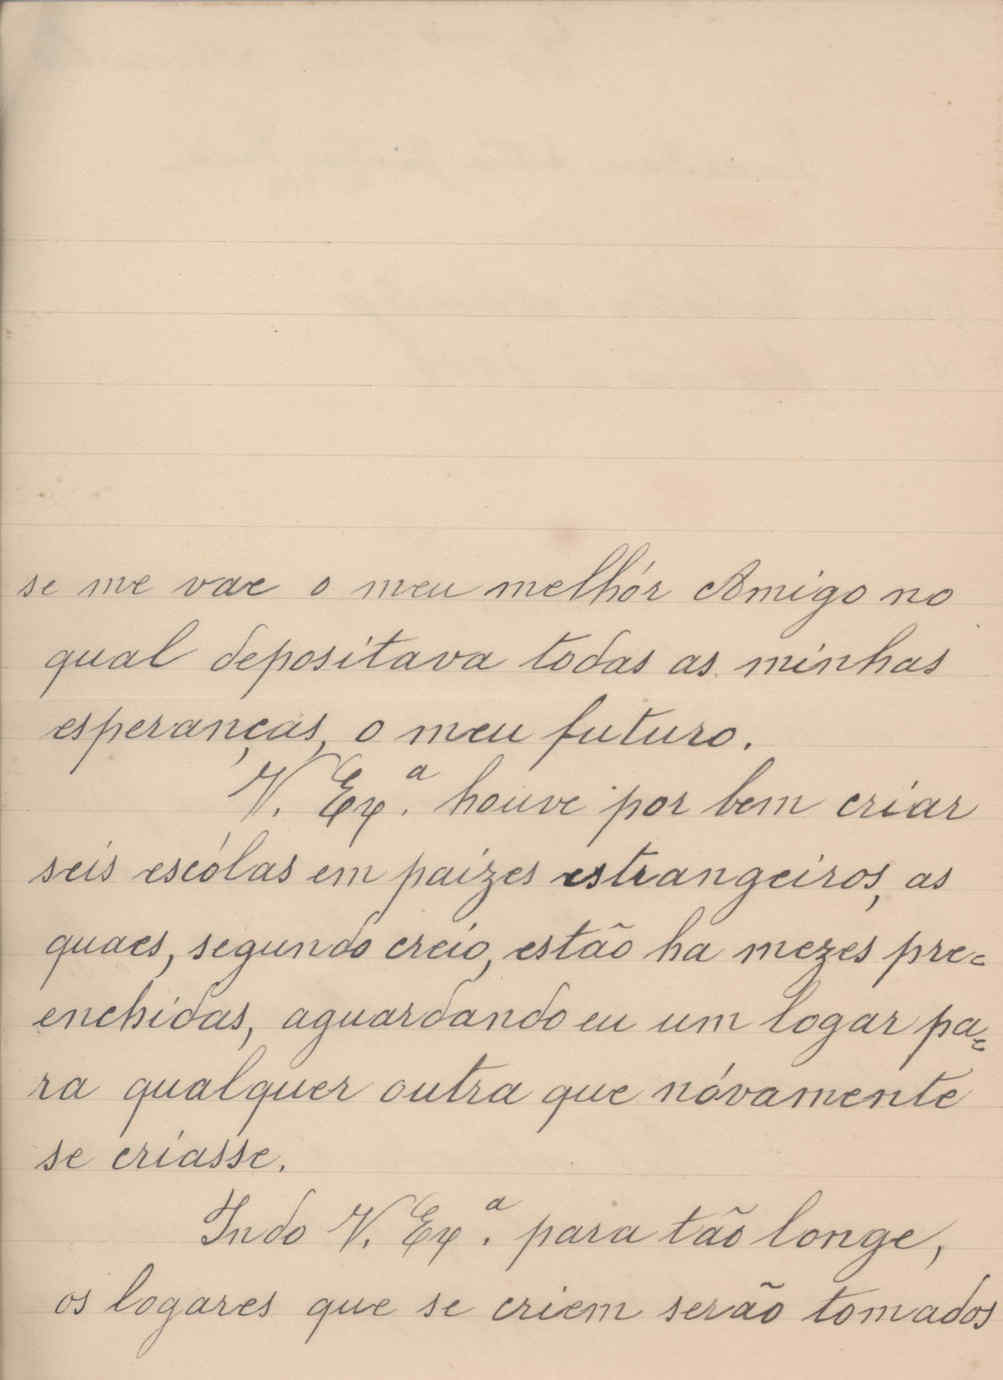 se me vae o meu melhór Amigo no
qual depositava todas as minhas
esperanças, o meu futuro.
V. Exª. houve por bem criar
seis escólas em paizes estrangeiros, as
quaes, segundo creio, estão ha mezes pre=
enchidas, aguardando eu um logar pa=
ra qualquer outra que nóvamente
se criasse.
Indo V. Exª. para tão longe,
os logares que se criem serão tomados